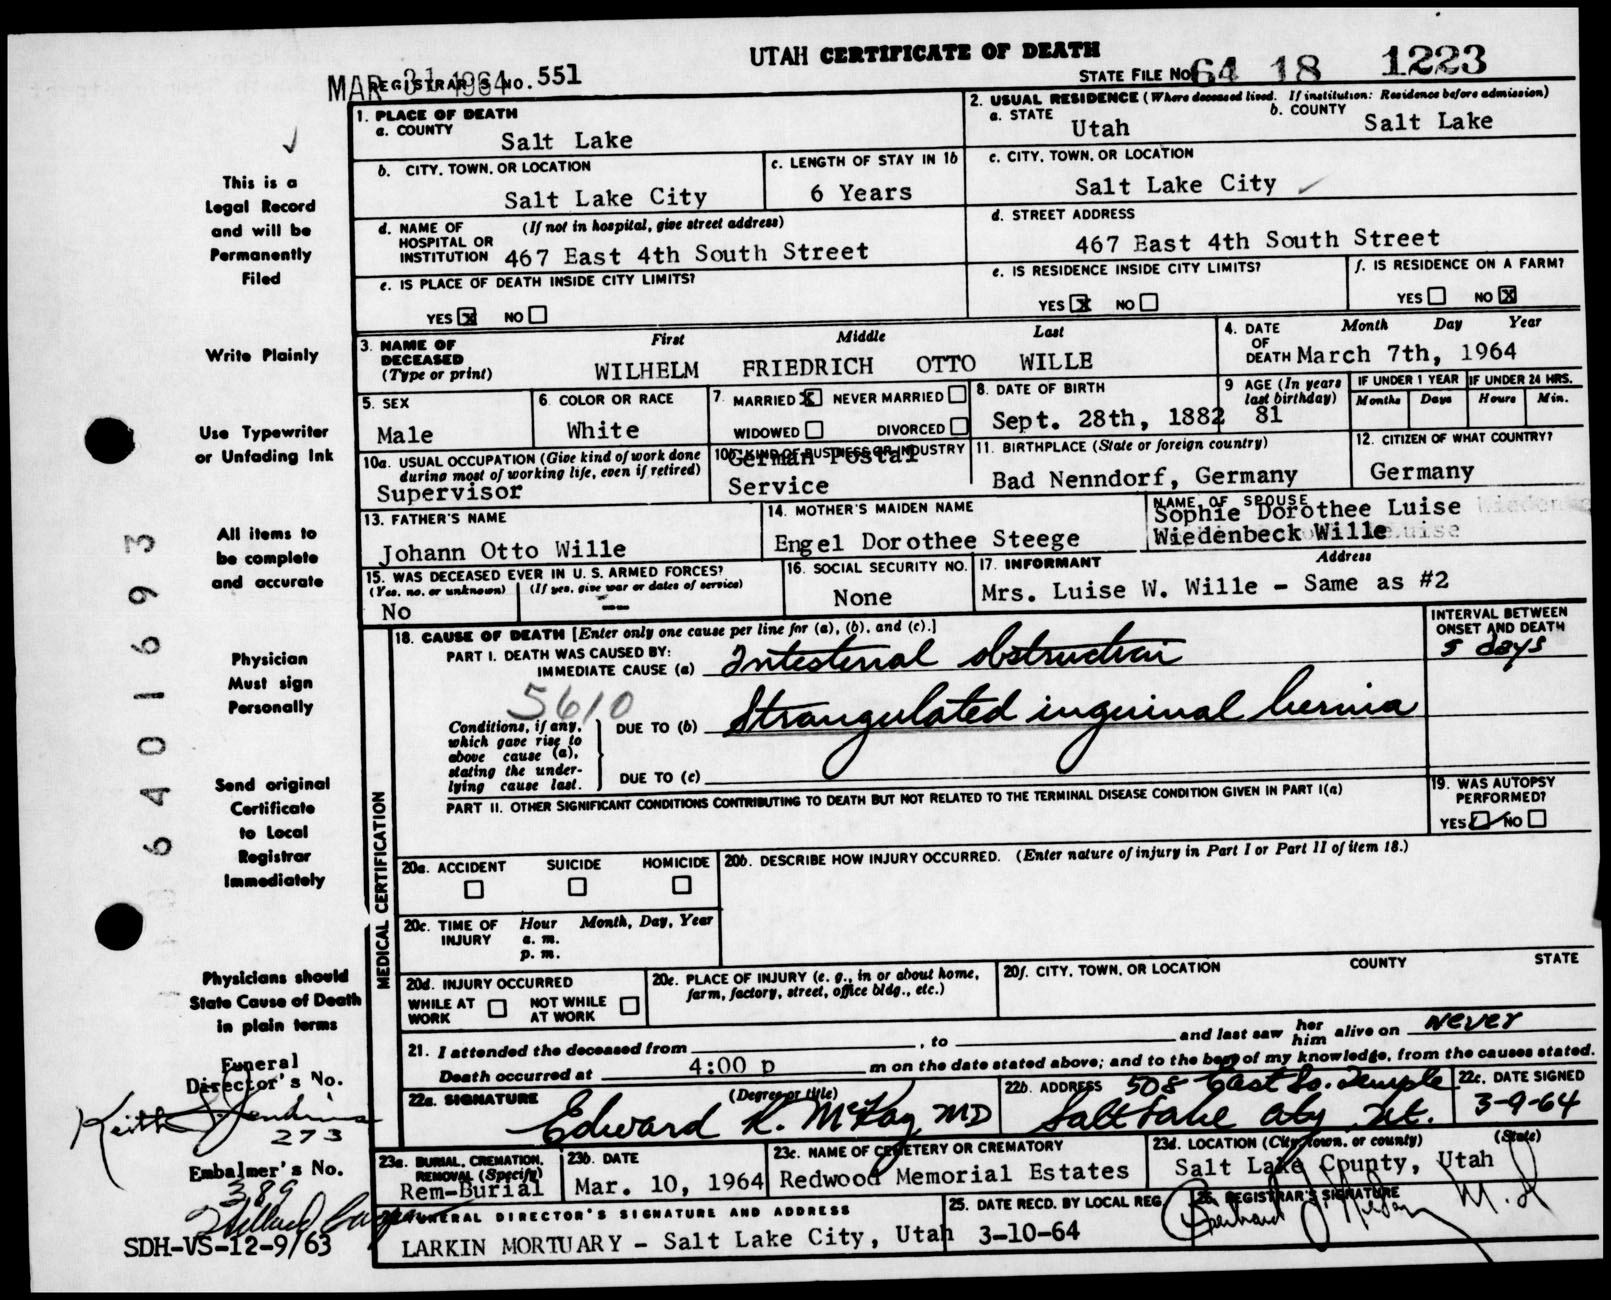 UTAH CERTIFICATE OF DEATH
MAR 31 1964
REGISTRAR'S NO. 551
STATE FILE NO. 64 18 1223
1. PLACE OF DEATH
a. COUNTY
Salt Lake
2. USUAL RESIDENCE (Where deceased lived. If institution: Residence before admission)
a. STATE
Utah
b. COUNTY
Salt Lake
b. CITY, TOWN, OR LOCATION
Salt Lake City
c. LENGTH OF STAY IN 1b
6 Years
c. CITY, TOWN, OR LOCATION
Salt Lake City
d. NAME OF HOSPITAL OR INSTITUTION
(If not in hospital, give street address)
467 East 4th South Street
d. STREET ADDRESS
467 East 4th South Street
e. IS PLACE OF DEATH INSIDE CITY LIMITS?
YES x NO
e. IS RESIDENCE INSIDE CITY LIMITS?
YES x NO
f. IS RESIDENCE ON A FARM?
YES NO x
3. NAME OF DECEASED (Type or print)
First Middle Last
WILHELM FRIEDRICH OTTO WILLE
4. DATE OF DEATH
Month Day Year
March 7th, 1964
5. SEX
Male
6. COLOR OR RACE
White
7. MARRIED x NEVER MARRIED
WIDOWED DIVORCED
8. DATE OF BIRTH
Sept. 28th, 1882
9 AGE (In years last birthday)
81
IF UNDER 1 YEAR
Months Days
IF UNDER 24 HRS.
Hours Min.
10a. USUAL OCCUPATION (Give kind of work done during most of working life, even if retired)
Supervisor
10b. KIND OF BUSINESS OR INDUSTRY
German Postal
Service
11. BIRTHPLACE (State or foreign country)
Bad Nenndorf, Germany
12. CITIZEN OF WHAT COUNTRY?
Germany
13. FATHER'S NAME
Johann Otto Wille
14. MOTHER'S MAIDEN NAME
Engel Dorothee Steege
NAME OF SPOUSE
Sophie Dorothee Luise
Wiedenbeck Wille
15. WAS DECEASED EVER IN U. S. ARMED FORCES?
(Yes, no, or unknown) (If yes, give war or dates of service)
No --
16. SOCIAL SECURITY NO.
None
17. INFORMANT Address
Mrs. Luise W. Wille - Same as #2
MEDICAL CERTIFICATION
18. CAUSE OF DEATH [Enter only one cause per line for (a), (b), and (c).]
INTERVAL BETWEEN ONSET AND DEATH
PART I. DEATH WAS CAUSED BY:
IMMEDIATE CAUSE (a) Intestinal obstruction
5 days
5610
Conditions, if any, which gave rise to above cause (a), stating the underlying cause last.
DUE TO (b) Strangulated inguinal hernia
DUE TO (c)
PART II. OTHER SIGNIFICANT CONDITIONS CONTRIBUTING TO DEATH BUT NOT RELATED TO THE TERMINAL DISEASE CONDITION GIVEN IN PART I(a)
19. WAS AUTOPSY PERFORMED?
YES NO
20a. ACCIDENT SUICIDE HOMICIDE
20b. DESCRIBE HOW INJURY OCCURRED. (Enter nature of injury in Part I or Part II of item 18.)
20c. TIME OF INJURY
Hour Month, Day, Year
a. m.
p. m.
20d. INJURY OCCURRED
WHILE AT WORK NOT WHILE AT WORK
20e. PLACE OF INJURY (e. g., in or about home, farm, factory, street, office bldg., etc.)
20f. CITY, TOWN, OR LOCATION COUNTY STATE
21. I attended the deceased from , to and last saw her him alive on never
Death occurred at 4:00 p m on the date stated above; and to the best of my knowledge, from the causes stated.
22a. SIGNATURE (Degree or title)
Edward R. McKay MD
22b. ADDRESS 508 East So. Temple
Salt Lake City Ut.
22c. DATE SIGNED
3-9-64
23a. BURIAL, CREMATION, REMOVAL (Specify)
Rem-Burial
23b. DATE
Mar. 10, 1964
23c. NAME OF CEMETERY OR CREMATORY
Redwood Memorial Estates
23d. LOCATION (City, town, or county) (State)
Salt Lake County, Utah
FUNERAL DIRECTOR'S SIGNATURE AND ADDRESS
LARKIN MORTUARY - Salt Lake City, Utah
25. DATE RECD. BY LOCAL REG.
3-10-64
26. REGISTRAR'S SIGNATURE
This is a
Legal Record
and will be
Permanently
Filed
Write Plainly
Use Typewriter
or Unfading Ink
All items to
be complete
and accurate
Physician
Must sign
Personally
Send original
Certificate
to Local
Registrar
Immediately
Physicians should
State Cause of Death
in plain terms
Funeral
Director's No.
Keith Jenkins
273
Embalmer's No.
389
SDH-VS-12-9/63
6401693